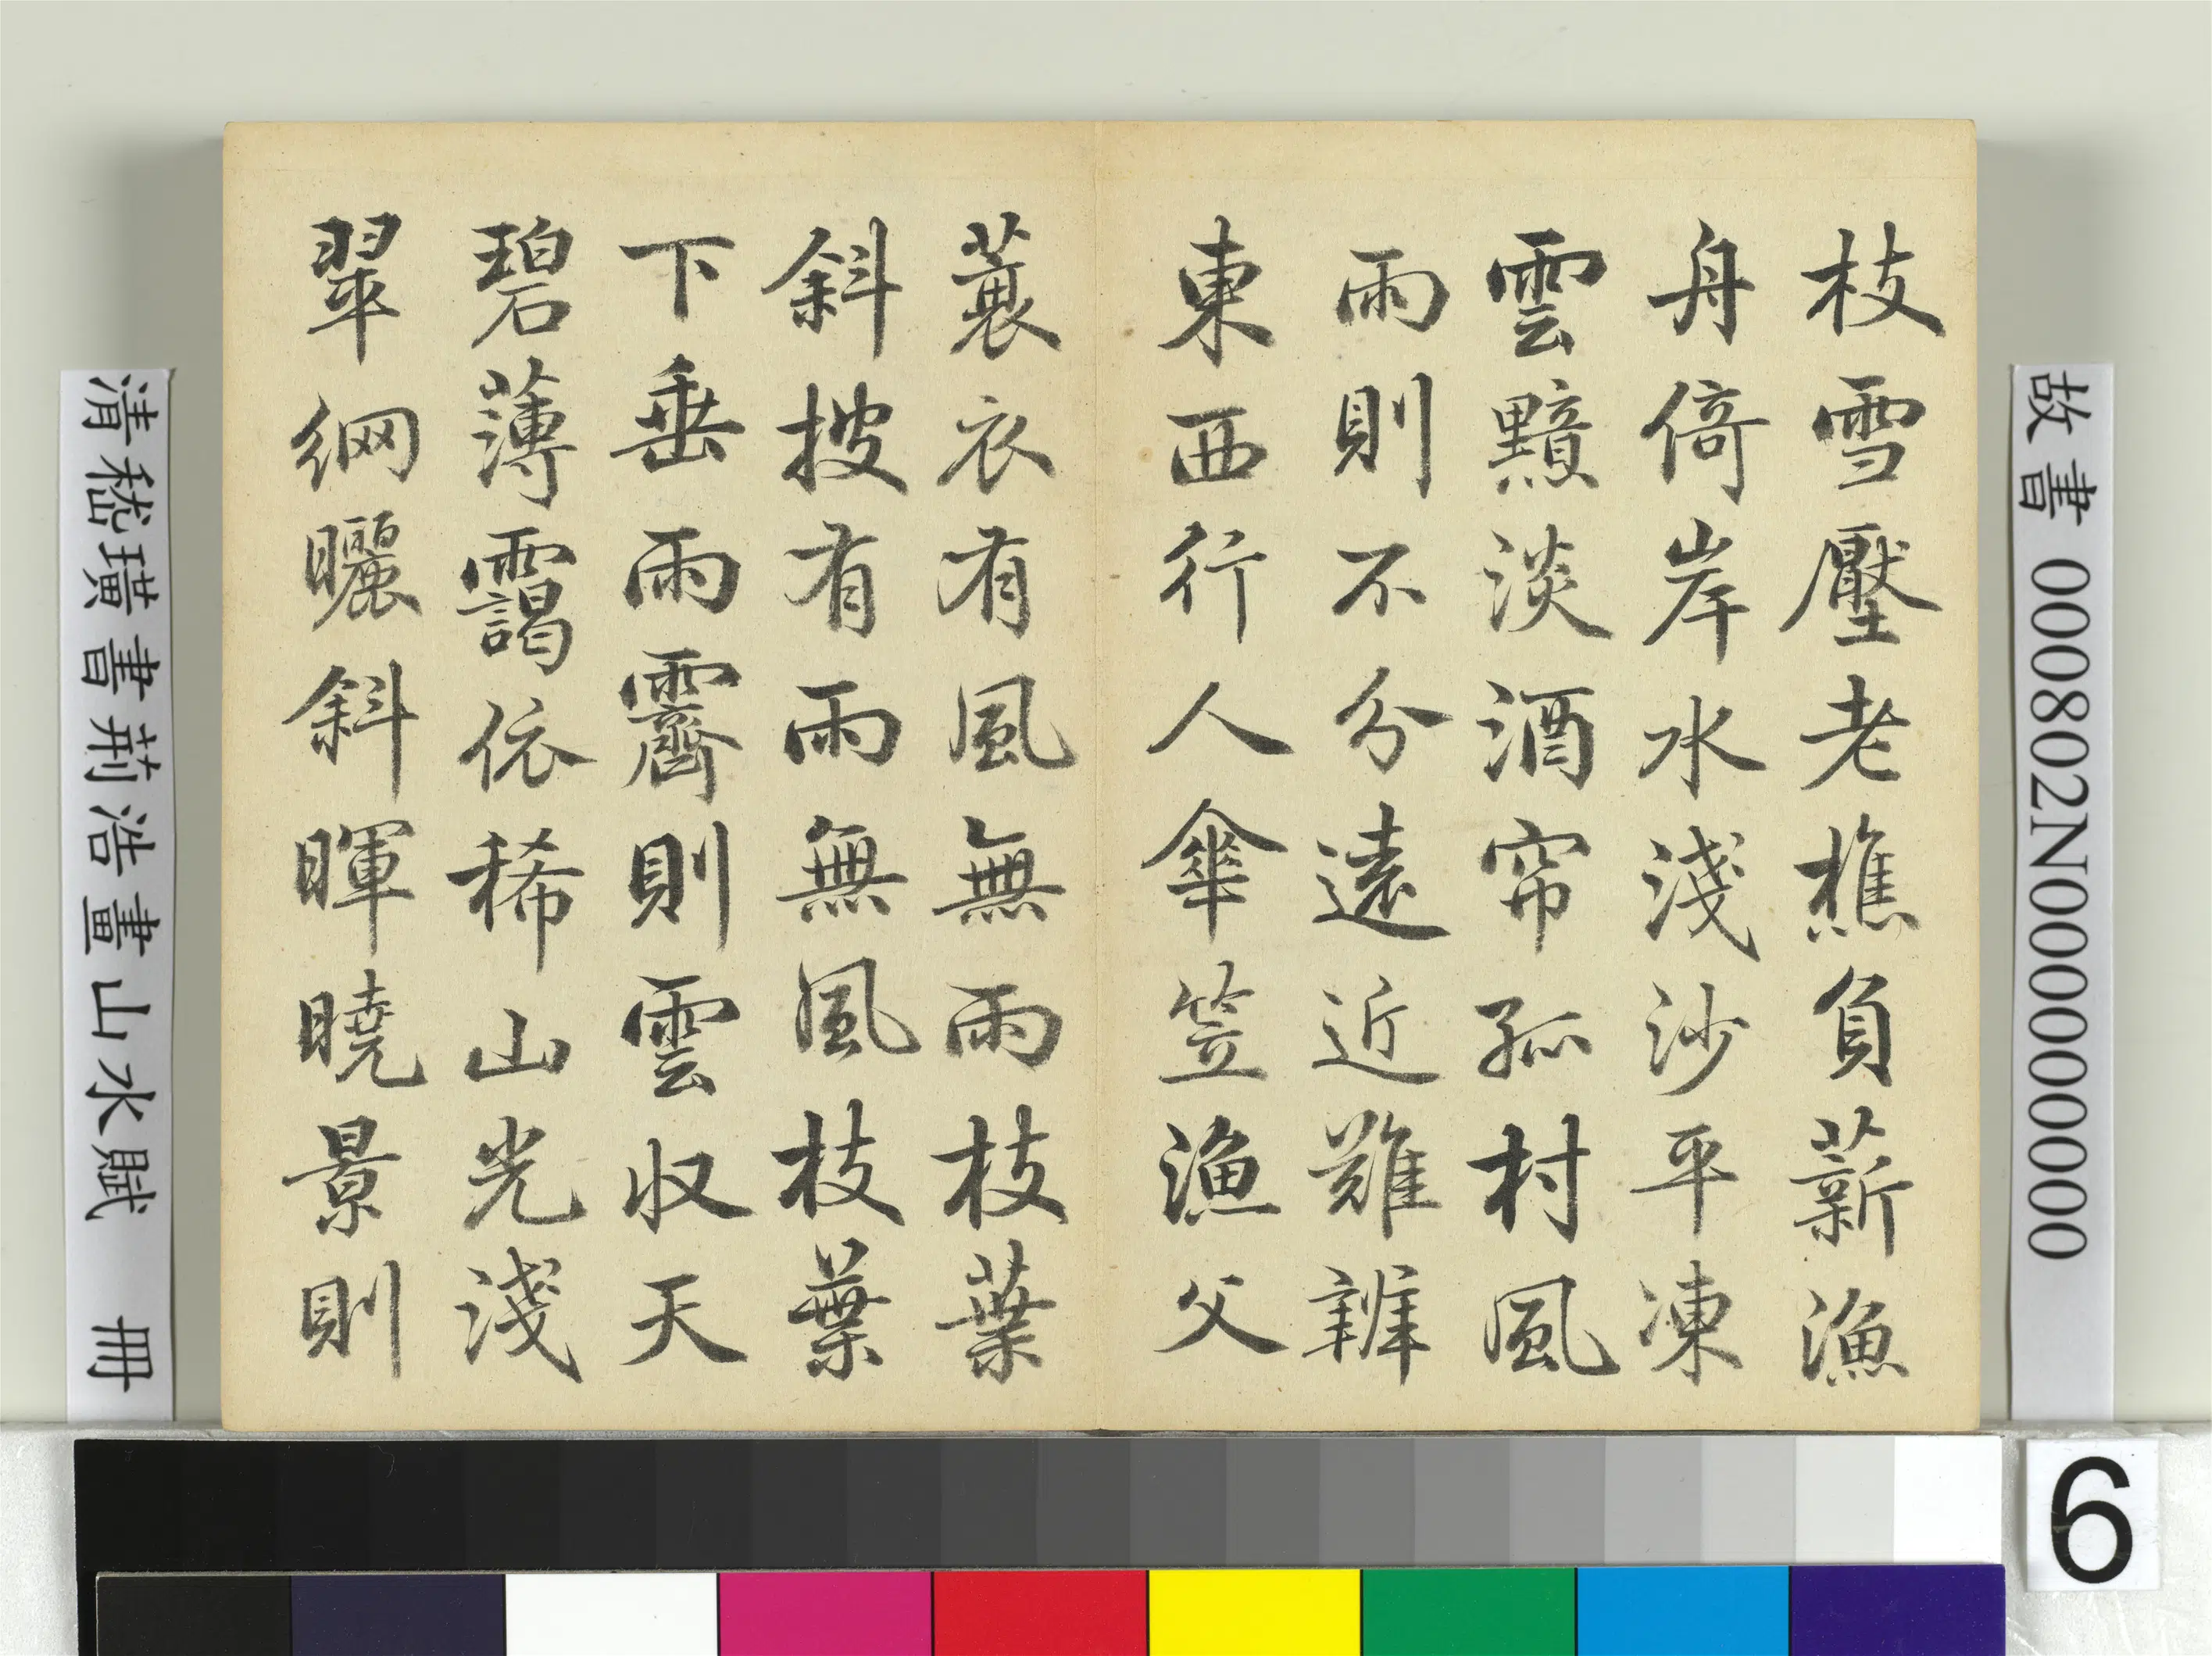 故書 000802N000000000
枝雪壓老樵負薪漁
舟倚岸水淺沙平凍
雲黯淡酒帘孤村風
雨則不分遠近難辨
東西行人傘笠漁父
蓑衣有風無雨枝葉
斜披有雨無風枝葉
下垂雨霽則雲收天
碧薄靄依稀山光淺
翠網曬斜暉曉景則
清嵇璜書荊浩畫山水賦 冊
6